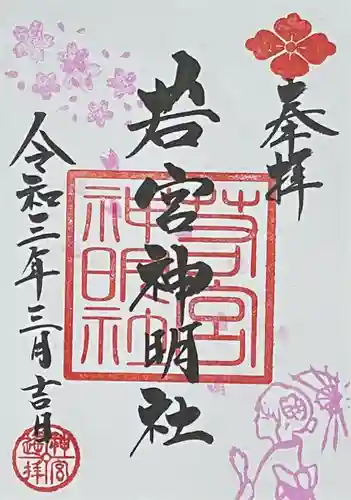 奉拝
若宮神明社
若宮神明社
令和三年三月吉日
神宮遥拝